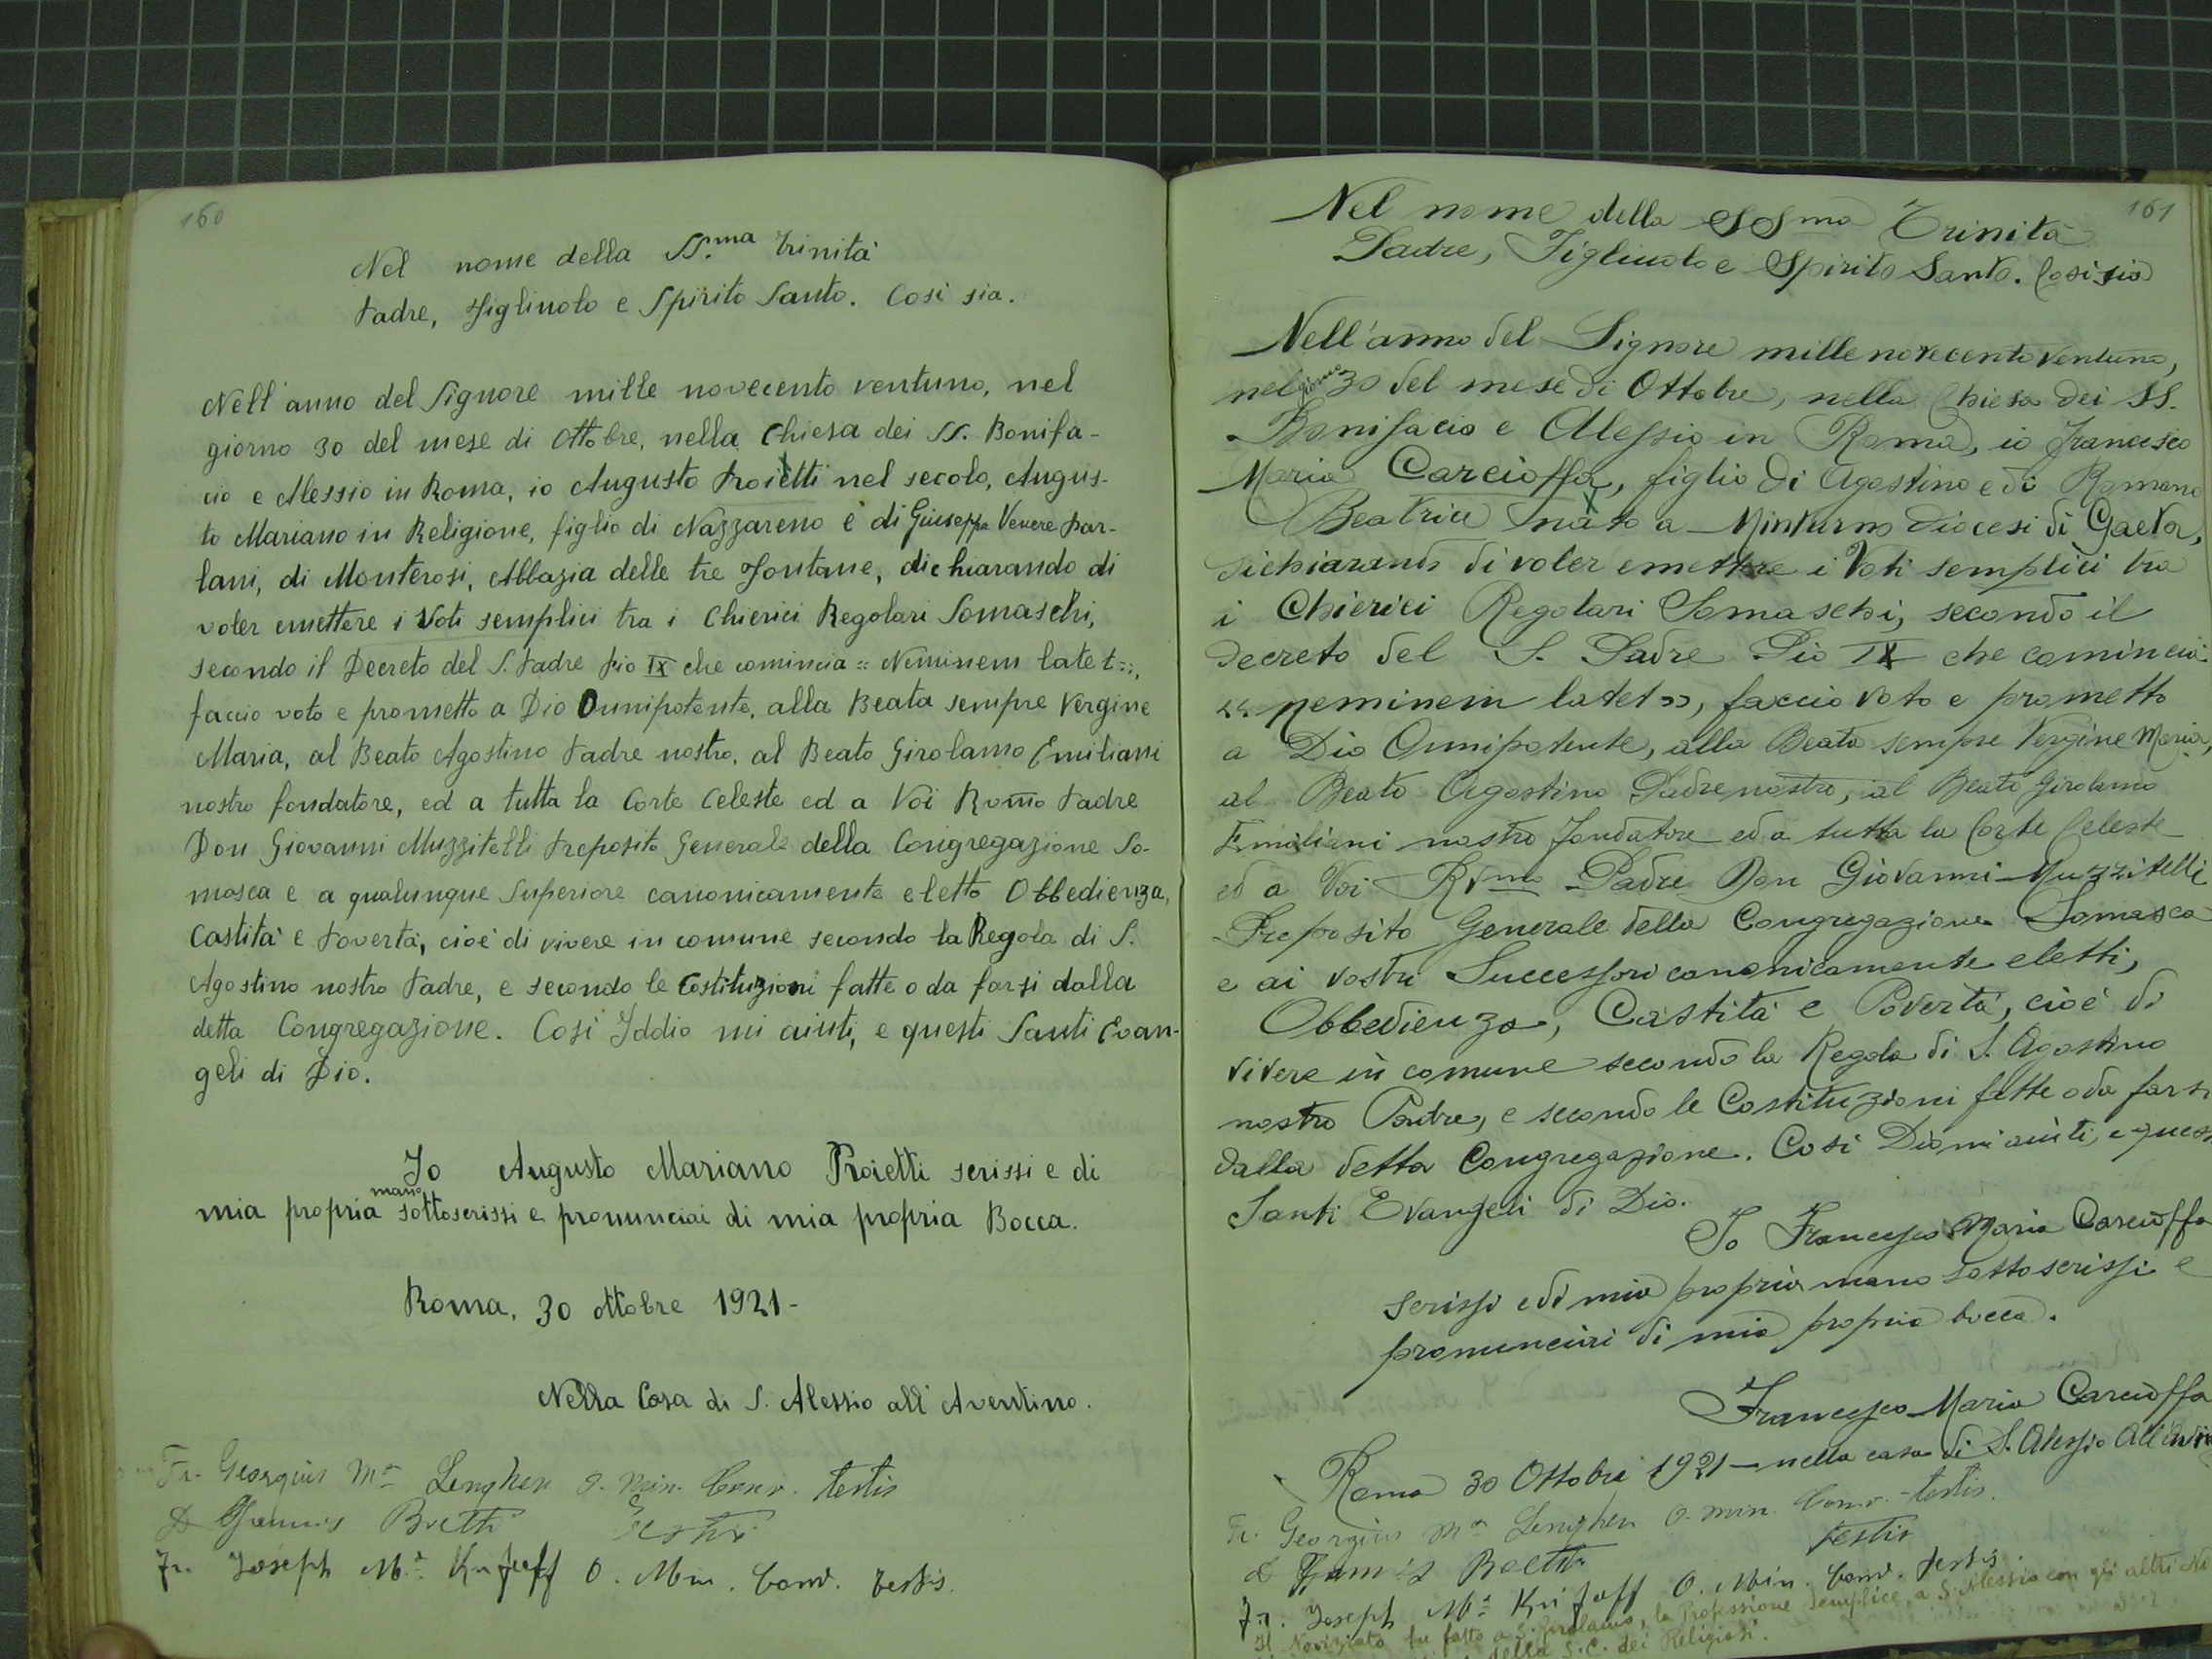 160
Nel nome della SS.ma Trinità
Padre, Figliuolo e Spirito Santo. Così sia.
Nell'anno del Signore mille novecento ventuno, nel
giorno 30 del mese di Ottobre, nella Chiesa dei SS. Bonifa-
cio e Alessio in Roma, io Augusto Proietti nel secolo, Augus-
to Mariano in Religione, figlio di Nazzareno e di Giuseppa Venere Par-
lani, di Monterosi, Abbazia delle tre Fontane, dichiarando di
voler emettere i Voti semplici tra i Chierici Regolari Somaschi,
secondo il Decreto del S. Padre Pio IX che comincia = Neminem latet =,
faccio voto e prometto a Dio Onnipotente, alla Beata sempre Vergine
Maria, al Beato Agostino Padre nostro, al Beato Girolamo Emiliani
nostro fondatore, ed a tutta la Corte Celeste ed a Voi Rev̄mo Padre
Don Giovanni Muzzitelli Preposito Generale della Congregazione So-
masca e a qualunque Superiore canonicamente eletto Obbedienza,
Castità e Povertà, cioè di vivere in comune secondo la Regola di S.
Agostino nostro Padre, e secondo le Costituzioni fatte o da farsi dalla
detta Congregazione. Così Iddio mi aiuti, e questi Santi Evan-
geli di Dio.
Io Augusto Mariano Proietti scrissi e di
mia propria mano sottoscrissi e pronunciai di mia propria Bocca.
Roma, 30 ottobre 1921-
Nella Casa di S. Alessio all'Aventino.
Fr. Georgius Mª Lenghen O. Min. Conv. testis
testis
Fr. Joseph M.ª O. Min. Conv. testis.
161
Nel nome della SSma Trinità
Padre, Figliuolo e Spirito Santo. Così sia
Nell'anno del Signore mille novecento ventuno,
nel giorno 30 del mese di Ottobre, nella Chiesa dei SS.
Bonifacio e Alessio in Roma, io Francesco
Maria Carcioffa, figlio di Agostino e di Romano
Beatrice nato a Minturno Diocesi di Gaeta,
dichiarando di voler emettere i Voti semplici tra
i Chierici Regolari Somaschi, secondo il
Decreto del S. Padre Pio IX che comincia
"neminem latet", faccio voto e prometto
a Dio Onnipotente, alla Beata sempre Vergine Maria,
al Beato Agostino Padre nostro, al Beato Girolamo
Emiliani nostro fondatore ed a tutta la Corte Celeste
ed a Voi Rvmo Padre Don Giovanni Muzzitelli
Preposito Generale della Congregazione Somasca
e ai vostri Successori canonicamente eletti,
Obbedienza, Castità e Povertà, cioè di
vivere in comune secondo la Regola di S. Agostino
nostro Padre, e secondo le Costituzioni fatte o da farsi
dalla detta Congregazione. Così Dio mi aiuti, e questi
Santi Evangeli di Dio.
Io Francesco Maria Carcioffa
scrissi e di mia propria mano sottoscrissi e
pronunciai di mia propria bocca.
Francesco Maria Carcioffa
Roma 30 Ottobre 1921 - nella casa di S. Alessio All'
Fr. Georgius Mª Lenghen O. Min. Conv. testis.
testis
Fr. Joseph Mª O. Min. Conv. testis.
Il Noviziato fu fatto a S. Girolamo, la Professione semplice a S. Alessio con gli altri
della S.C. dei Religiosi.